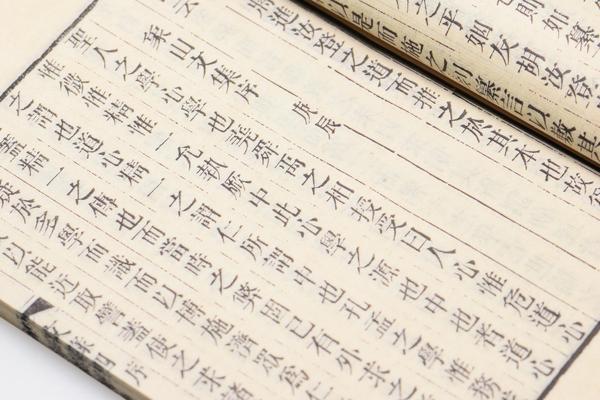 也則如纂
之乎如友胡汝登
以是而施之列纂言以敷其
焉進汝登之道而推之於其本也
云
象山文集序 庚辰
聖人之學心學也堯舜禹之相授受曰人心惟危道心
惟微惟精惟一允執厥中此心學之源也中也者道心
之謂也道心精一之謂仁所謂中也孔孟之學惟務
蓋精一之傳也而當時之弊固已有外求之
疑於多學而識而以博施濟眾為仁
以能近取譬蓋使之求諸
序